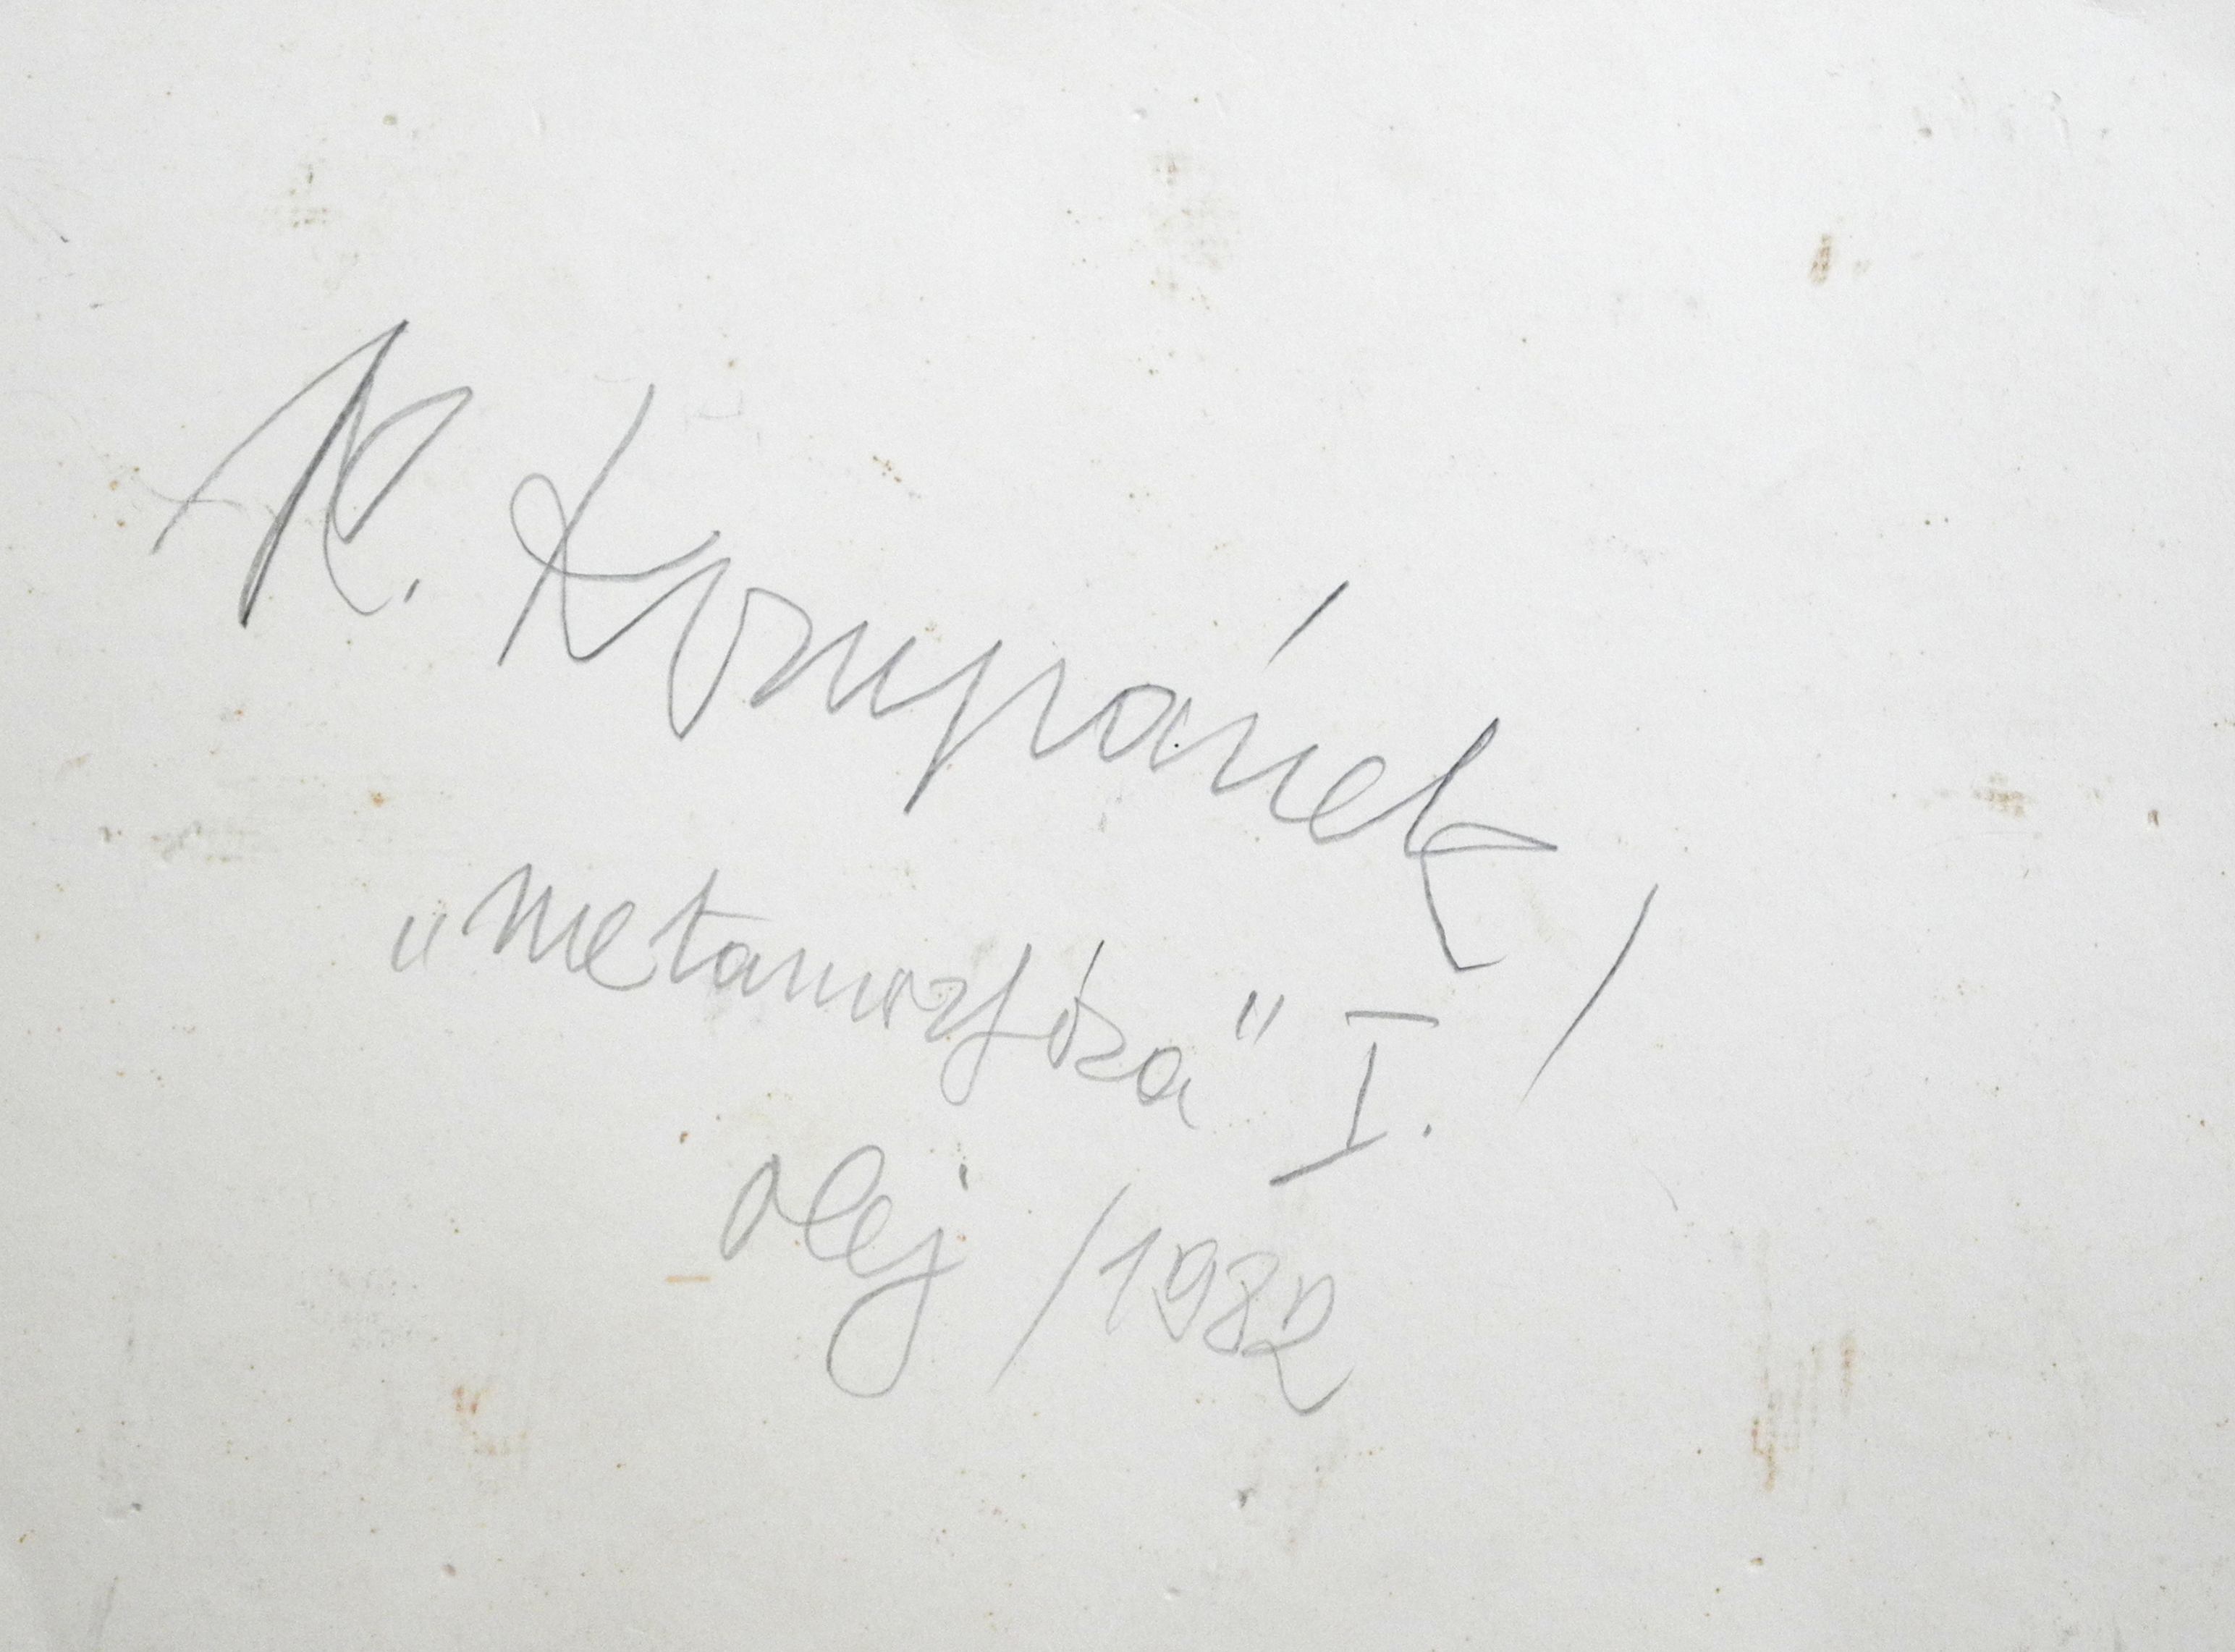 V. Kompánek/
"metamorfóza" I.
olej /1982